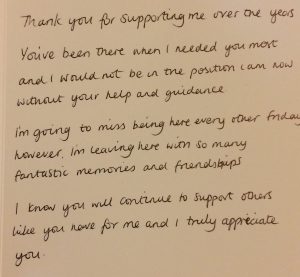 Thank you for supporting me over the years
You've been there when I needed you most
and I would not be in the position I am now
without your help and guidance
I'm going to miss being here every other friday
however, I'm leaving here with so many
fantastic memories and friendships
I know you will continue to support others
like you have for me and I truly appreciate
you.